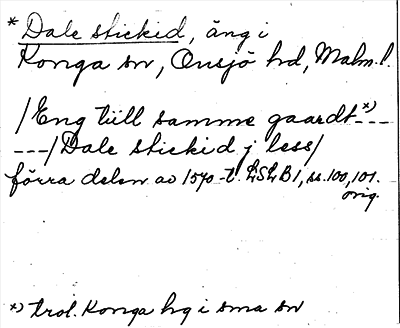 * Dale stickid, äng i
Konga sn, Onsjö hd, Malm. l.
/Eng till samme gaardt *) ---
---/Dale stickid j less/
förra delen av 1570-t. LSLB1, ss. 100, 101.
orig.
*) trol. Konga hg i sma sn